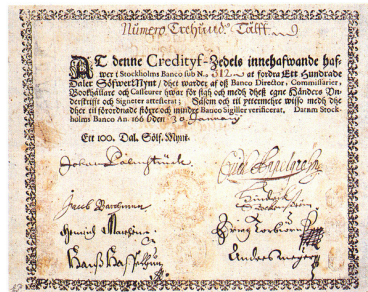 Numero. Trehund. Tålff
AT denne Creditijf-Zedels innehafwande haf-
wer i Stockholms Banco sub N.º 312 at fordra Ett Hundrade
Daler SölfwerMynt / dhet warder af oß Banco Director, Commissarier,
Bookhållare och Casseurer hwar för sigh och medh dheß egne Händers Un-
derskrifft och Signeter attesterat; Såsom och til yttermehre wißo medh dhe
dher til förordnade större och mindre Banco Sigiller verificerat. Datum Stock-
holms Banco An. 166 6 den 30 January
Ett 100. Dal. Sölf. Mynt.
Johan Palmstruch
Jacob
Hinrich
Hanß
Anders Meijer